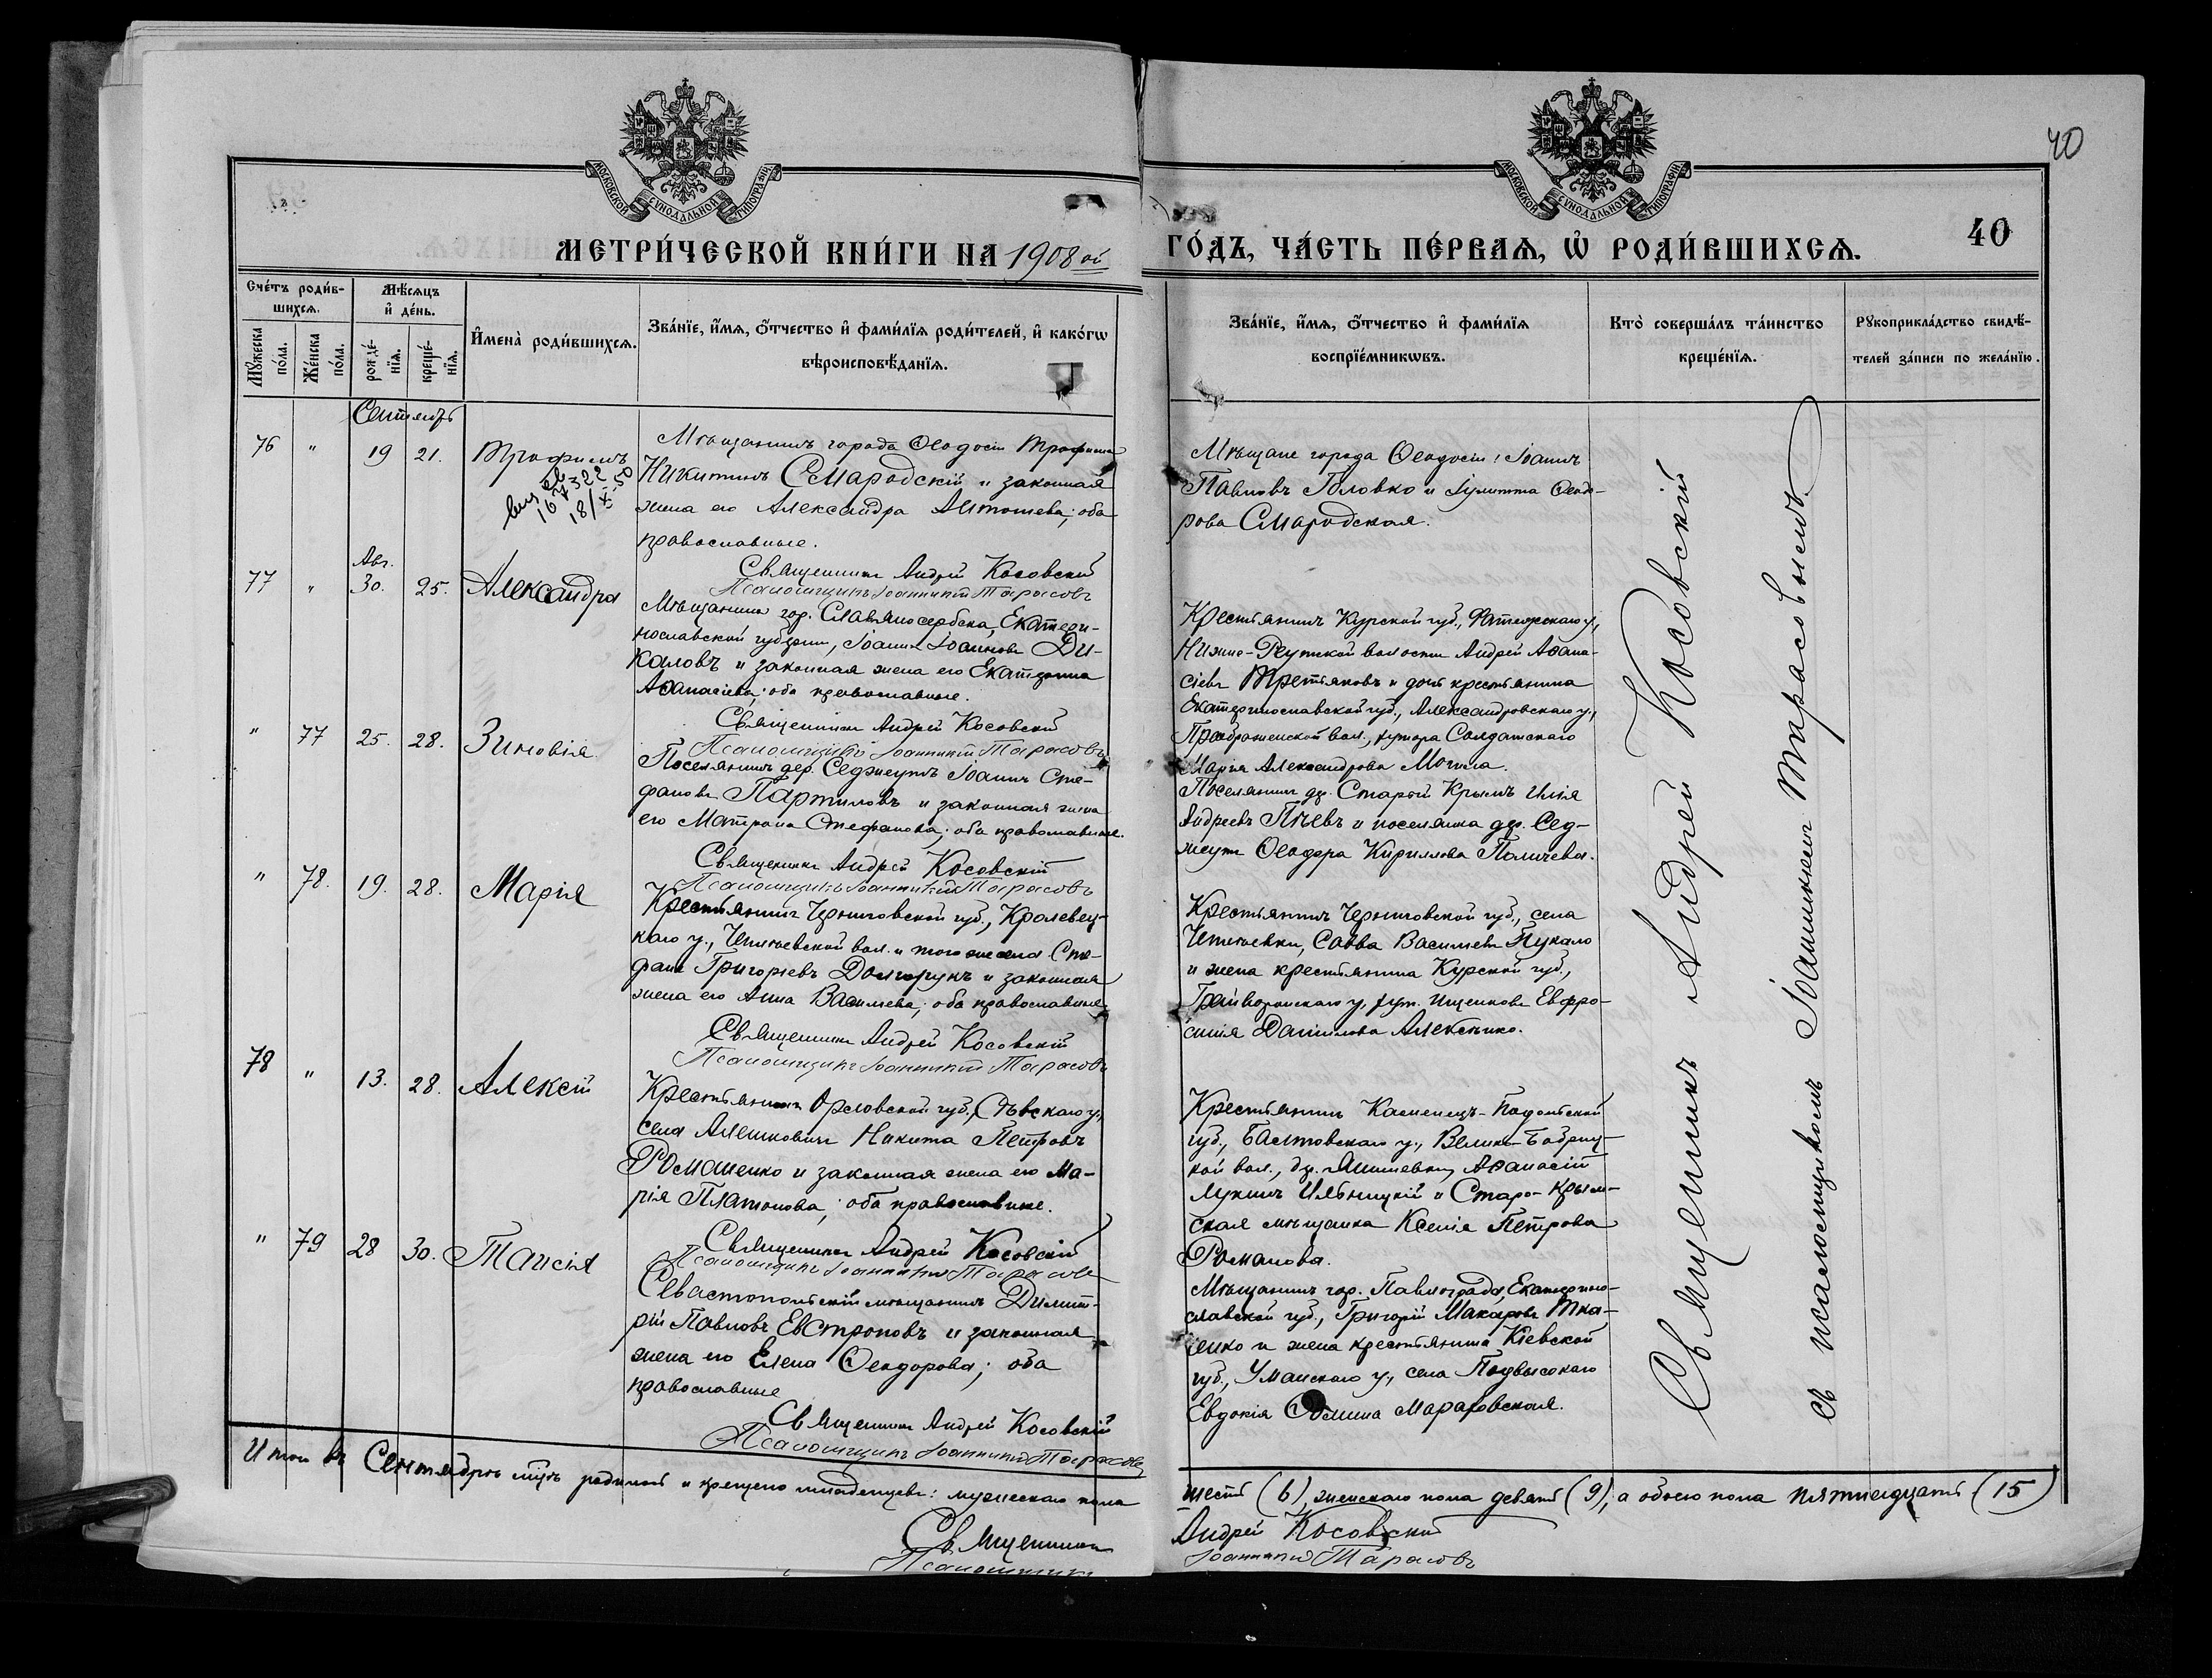 40
МОСКОВСКОЙ СѴНОДАЛЬНОЙ ТИПОГРАФІИ
МОСКОВСКОЙ СѴНОДАЛЬНОЙ ТИПОГРАФІИ
МЕТРИ́ЧЕСКОЙ КНИ́ГИ НА 1908 ой
ГО́ДЪ, ЧА́СТЬ ПЕ́РВАѦ, Ѿ РОДИ́ВШИХСѦ.
40
Сче́тъ роди́в-
шихсѧ.
Мѣ́сѧцъ
и҆ де́нь.
Мꙋ́жеска
по́ла.
Же́нска
по́ла.
рожде́-
нїѧ.
креще́-
нїѧ.
И҆мена̀ роди́вшихсѧ.
Зва́нїе, и҆́мѧ, ѻ҆́тчество и҆ фами́лїѧ роди́телей, и҆ како́гѡ
вѣроисповѣ́данїѧ.
Зва́нїе, и҆́мѧ, ѻ҆́тчество и҆ фами́лїѧ
воспрїе́мникѡвъ.
Кто̀ соверша́лъ та́инство
креще́нїѧ.
Рꙋкоприкла́дство свидѣ́-
телей за́писи по жела́нїю.
Сентябрь
76 " 19 21. Трофимъ
18/X-50
Мѣщанинъ города Ѳеодосіи Трофимъ
Никитинъ Смародскій и законная
жена его Александра Антонева; оба
православные.
Священникъ Андрей Косовскій
Псаломщикъ Іоанникій Тарасовъ
Мѣщане города Ѳеодосіи: Іоаннъ
Павловъ Головко и Іулитта Ѳеодо-
рова Смародская.
Авг.
77 " 30. 25. Александръ
Мѣщанинъ гор. Славяносербска, Екатери-
нославской губерніи, Іоаннъ Іоанновъ Ди-
каловъ и законная жена его Екатерина
Аѳанасіева; оба православные.
Священникъ Андрей Косовскій
Псаломщикъ Іоанникій Тарасовъ
Крестьянинъ Курской губ., Фатежскаго у.,
Нижне-Реутской волости Андрей Аѳана-
сіевъ Третьяковъ и дочь крестьянина
Екатеринославской губ., Александровскаго у.,
Преображенской вол., хутора Солдатскаго
Марія Александрова Могила.
" 77 25. 28. Зиновія
Поселянинъ дер. Седжеутъ Іоаннъ Сте-
фановъ Партиловъ и законная жена
его Матрона Стефанова; оба православные.
Священникъ Андрей Косовскій
Псаломщикъ Іоанникій Тарасовъ
Поселянинъ др. Старый Крымъ Илія
Андреевъ Пѣевъ и поселянка др. Сед-
жеутъ Ѳеодора Кириллова Паличева.
" 78. 19. 28. Марія
Крестьянинъ Черниговской губ., Кролевец-
каго у., Чепліевской вол. и того же села Сте-
фанъ Григорьевъ Долгорукъ и законная
жена его Анна Васильева; оба православные.
Священникъ Андрей Косовскій
Псаломщикъ Іоанникій Тарасовъ
Крестьянинъ Черниговской губ., села
Чепліевки, Савва Васильевъ Пукало
и жена крестьянина Курской губ.,
Грайворонскаго у., хут. Ищенкова Евфро-
синія Данилова Алексѣнко.
78 " 13. 28. Алексій
Крестьянинъ Орловской губ., Сѣвскаго у.,
села Алешковичи Никита Петровъ
Романенко и законная жена его Ма-
рія Платонова; оба православные.
Священникъ Андрей Косовскій
Псаломщикъ Іоанникій Тарасовъ
Крестьянинъ Каменецъ-Подольской
губ., Балтовскаго у., Велико-Бобриц-
кой вол., др. Аѳанасій
Лукинъ Ильницкій и Старо-Крым-
ская мѣщанка Ксенія Петрова
Романова.
" 79 28 30. Таисія
Севастопольскій мѣщанинъ Димит-
рій Павловъ Евстроповъ и законная
жена его Елена Ѳеодорова; оба
православные
Священникъ Андрей Косовскій
Псаломщикъ Іоанникій Тарасовъ
Мѣщанинъ гор. Павлограда, Екатерино-
славской губ., Григорій Макаровъ Тка-
ченко и жена крестьянина Кіевской
губ., Уманскаго у., села Подвысокаго
Евдокія Ѳомина Мараховская.
Священникъ Андрей Косовскій
съ псаломщикомъ Іоанникіемъ Тарасовымъ.
Итого въ Сентябрѣ мѣс. родилось и крещено младенцевъ: мужескаго пола
шесть (6), женскаго пола девять (9), а обоего пола пятнадцать (15)
Священникъ Андрей Косовскій
Псаломщикъ Іоанникій Тарасовъ